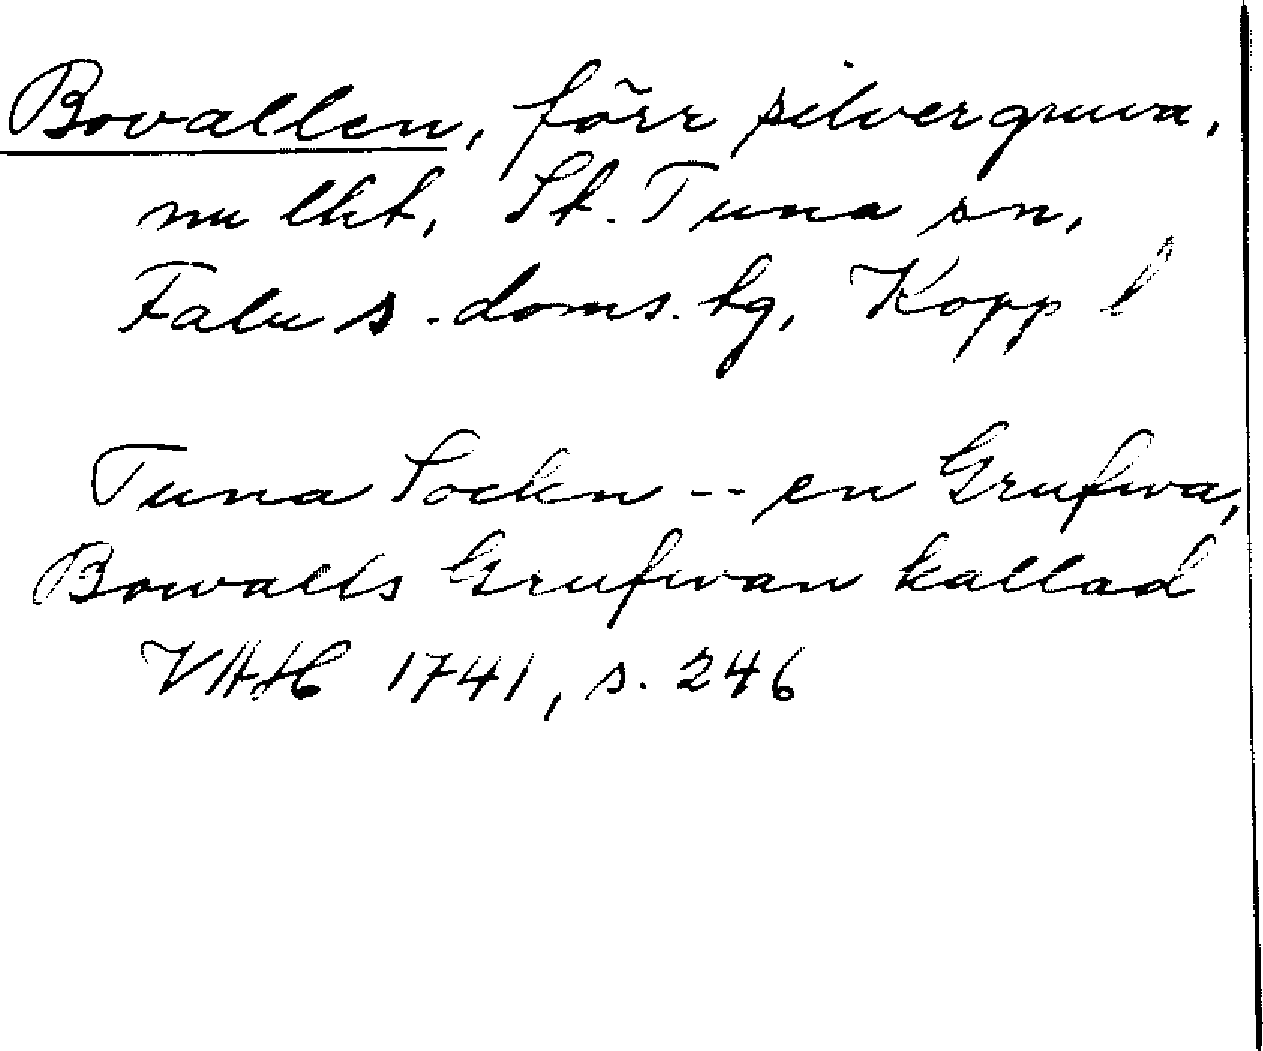 Bovallen, förr silvergruva,
nu lht, St. Tuna sn,
Falu s. doms. hg, Kopp l
Tuna Sockn -- en Grufwa,
Bowalls Grufwan kallad
VAH 1741, s. 246